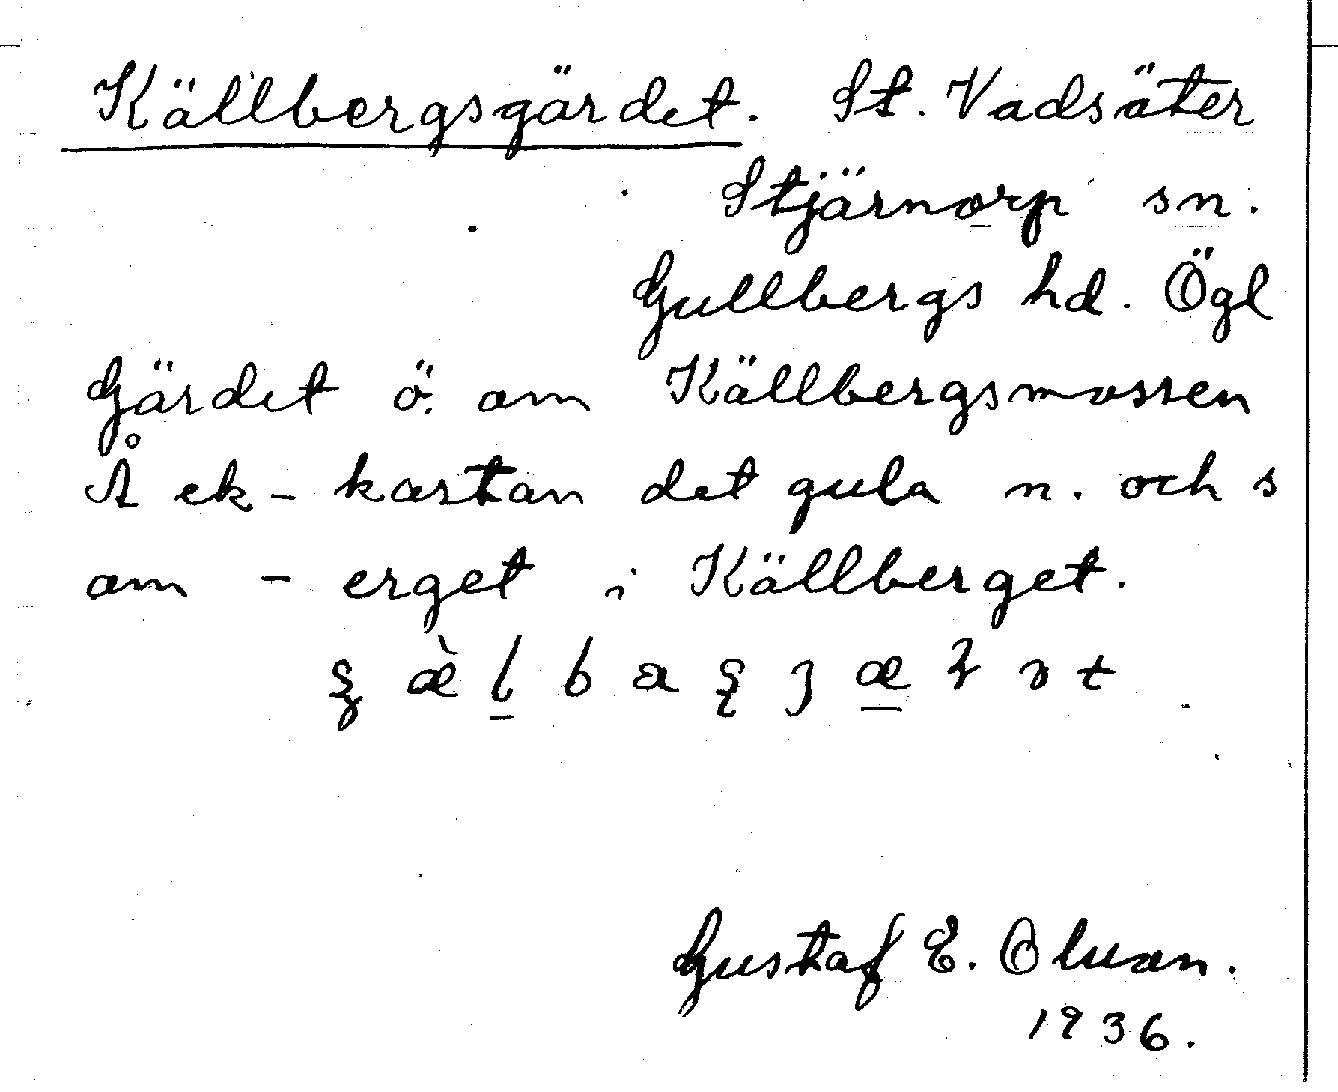 Källbergsgärdet. St. Vadsäter
Stjärnorp sn.
Gullbergs hd. Ögl
Gärdet ö. om Källbergsmossen
Å ek-kartan det gula n. och s
om - erget i Källberget.
Gustaf E.
1936.